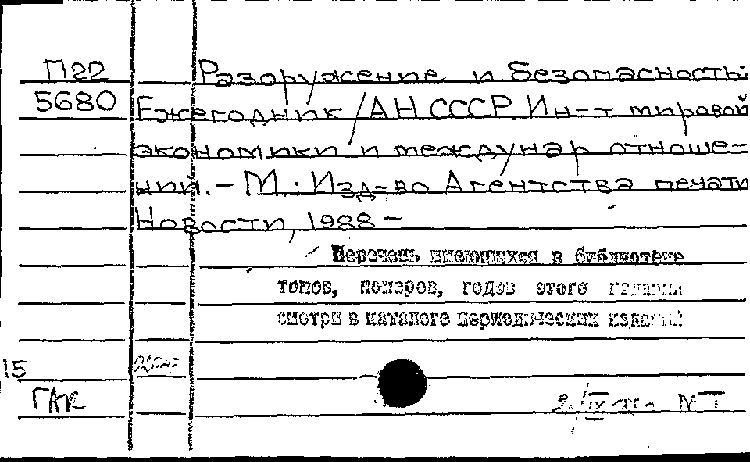 П22 Разоружение и безопасность:
5680 Ежегодник / АН СССР. Ин-т мировой
экономики и междунар. отноше-
ний. – М.: Изд-во Агентства печати
Новости, 1988 –
Перечень имеющихся в библиотеке
томов, номеров, годов этого издания
смотри в каталоге периодических изданий
15
ГАК